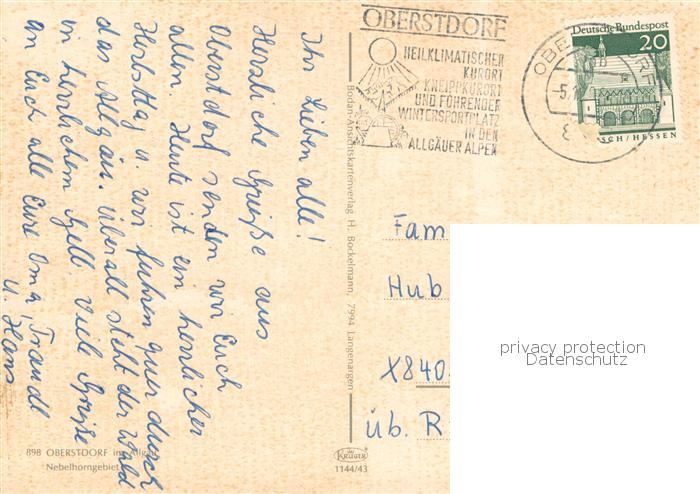 Ihr Lieben alle!
Herzliche Grüße aus
Oberstdorf senden wir Euch
allen. Heute ist ein herrlicher
Herbsttag u. wir fuhren quer durch
das Allgäu. Überall steht der Wald
in herrlichem Gelb. Viele Grüße
an Euch alle Eure Oma, Traudl
u. Hans
898 OBERSTDORF im Allgäu
Nebelhorngebiet
Boden-Ansichtskartenverlag H. Bockelmann, 7994 Langenargen
KRÜGER
1144/43
OBERSTDORF
HEILKLIMATISCHER
KURORT
KNEIPPKURORT
UND FÜHRENDER
WINTERSPORTPLATZ
IN DEN
ALLGÄUER ALPEN
OBERSTDORF
-5.
Deutsche Bundespost
20
LORSCH/HESSEN
Fam
Hub
X840
üb. R
privacy protection
Datenschutz